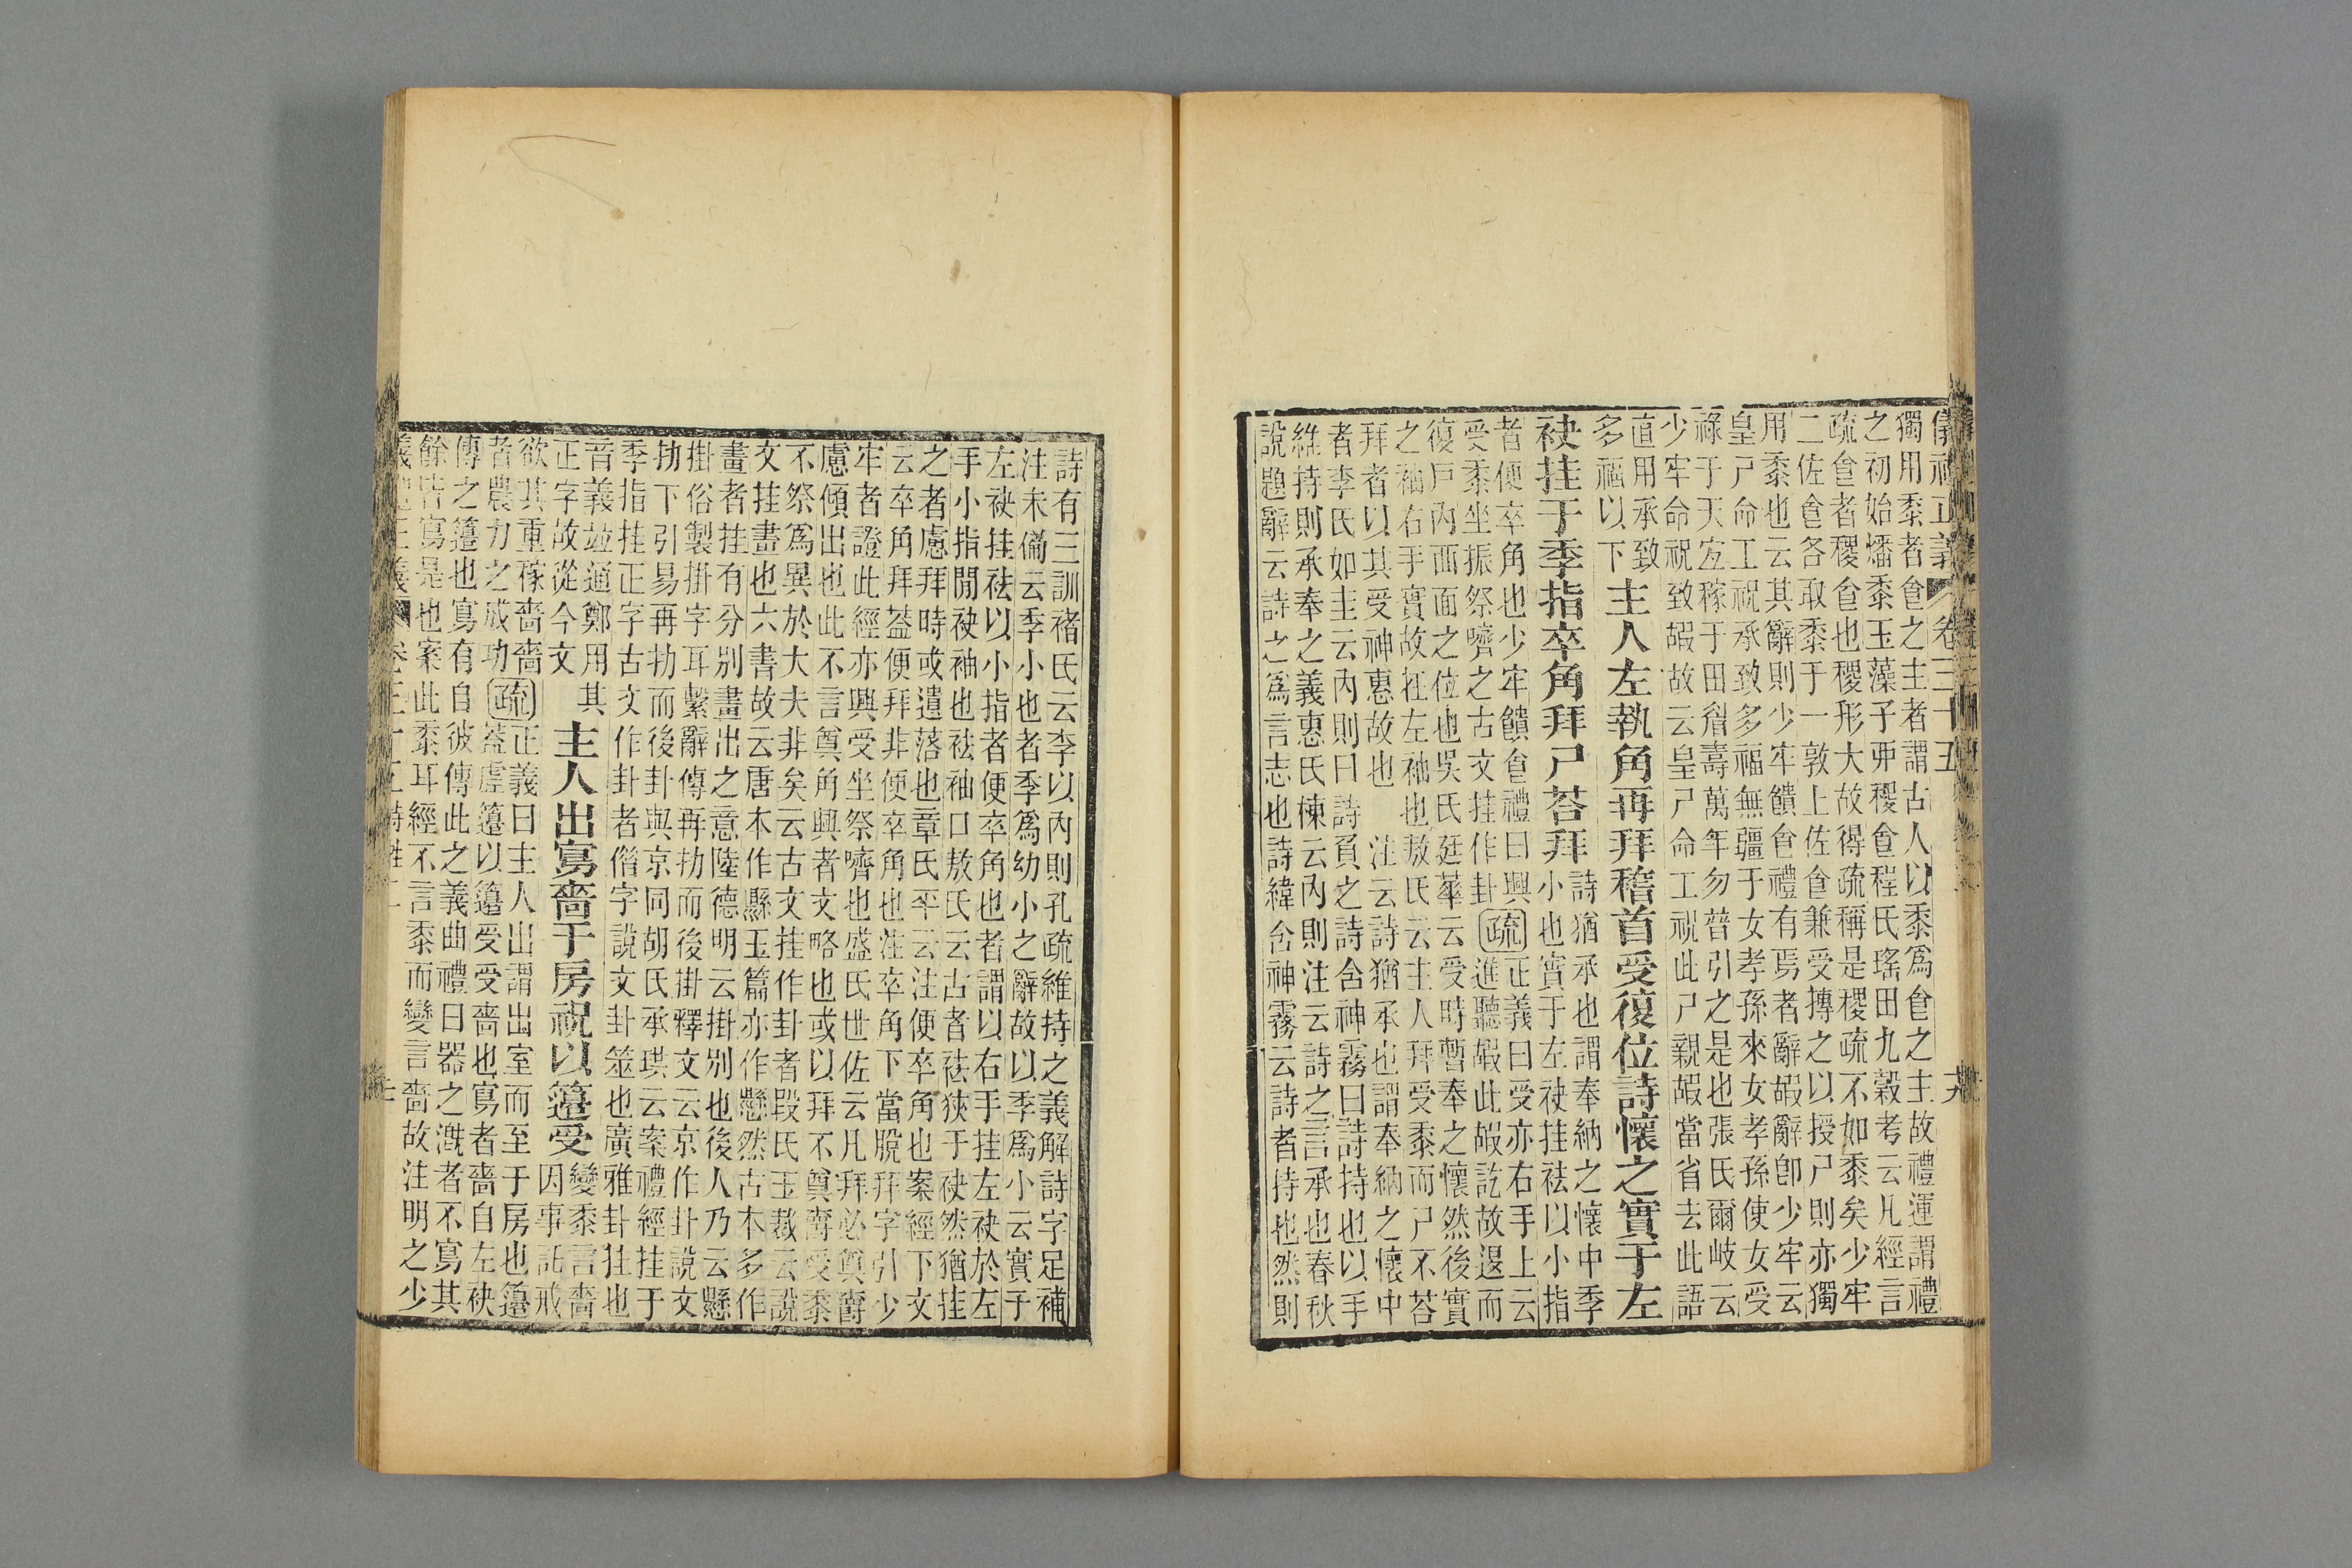 儀禮正義 卷三十五
獨用黍者食之主者謂古人以黍爲食之主故禮運謂禮
之初始燔黍玉藻子卯稷食程氏瑤田九穀考云凡經言
疏食者稷食也稷形大故得疏稱是稷疏不如黍矣少牢
二佐食各取黍于一敦上佐食兼受摶之以授尸則亦獨
用黍也云其辭則少牢饋食禮有焉者辭嘏辭卽少牢云
皇尸命工祝承致多福無疆于女孝孫來女孝孫使女受
祿于天宜稼于田眉壽萬年勿替引之是也張氏爾岐云
少牢命祝致嘏故云皇尸命工祝此尸親嘏當省去此語
直用承致
多福以下
主人左執角再拜稽首受復位詩懷之實于左
袂挂于季指卒角拜尸荅拜
詩猶承也謂奉納之懷中季
小也實于左袂挂袪以小指
者便卒角也少牢饋食禮曰興
受黍坐振祭嚌之古文挂作卦
疏
正義曰受亦右手上云
進聽嘏此嘏訖故退而
復戶內西面之位也吳氏廷華云受時暫奉之懷然後實
之袖右手實故在左袖也敖氏云主人拜受黍而尸不荅
拜者以其受神惠故也 注云詩猶承也謂奉納之懷中
者李氏如圭云內則曰詩負之詩含神霧曰詩持也以手
維持則承奉之義惠氏棟云內則注云詩之言承也春秋
說題辭云詩之爲言志也詩緯含神霧云詩者持也然則
詩有三訓褚氏云李以內則孔疏維持之義解詩字足補
注未備云季小也者季爲幼小之辭故以季爲小云實于
左袂挂袪以小指者便卒角也者謂以右手挂左袂於左
手小指閒袂袖也袪袖口敖氏云古者袪狹于袂然猶挂
之者慮拜時或遺落也章氏平云注便卒角也案經下文
云卒角拜蓋便拜非便卒角也注卒角下當脫拜字引少
牢者證此經亦興受坐祭嚌也盛氏世佐云凡拜必奠爵
慮傾出也此不言奠角興者文略也或以拜不奠爵受黍
不祭爲異於大夫非矣云古文挂作卦者段氏玉裁云說
文挂畫也六書故云唐本作縣玉篇亦作懸然古本多作
畫者挂有分別畫出之意陸德明云掛別也後人乃云懸
掛俗製掛字耳繫辭傳再扐而後掛釋文云京作卦說文
扐下引易再扐而後卦與京同胡氏承珙云案禮經挂于
季指挂正字古文作卦者偕字說文卦筮也廣雅卦挂也
音義竝通鄭用其
正字故從今文
主人出寫嗇于房祝以籩受
變黍言嗇
因事託戒
欲其重稼嗇嗇
者農力之成功
疏
正義曰主人出謂出室而至于房也籩
蓋虛籩以籩受受嗇也寫者嗇自左袂
傳之籩也寫有自彼傳此之義曲禮曰器之漑者不寫其
餘皆寫是也案此黍耳經不言黍而變言嗇故注明之少